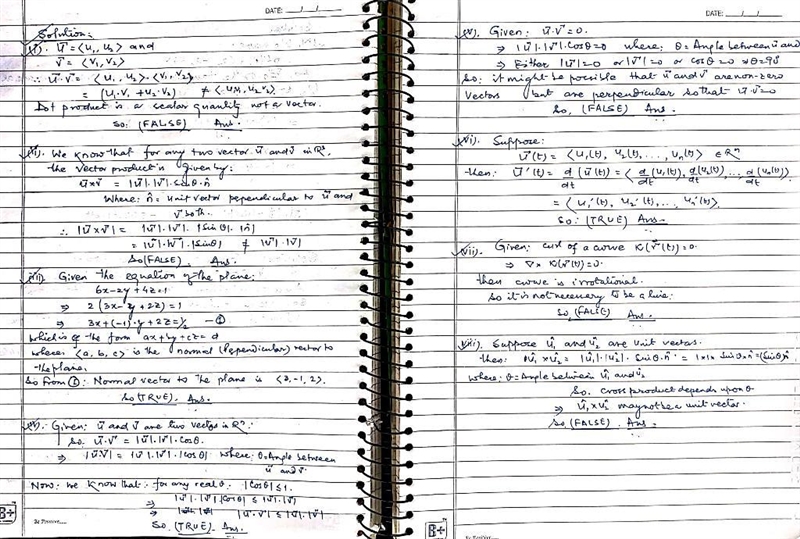 DATE: __/__/__
Solution:
(i). u⃗ = <u₁, u₂> and
v⃗ = <v₁, v₂>
∴ u⃗·v⃗ = <u₁, u₂>·<v₁, v₂>
= (u₁·v₁ + u₂·v₂) ≠ <u₁v₁, u₂v₂>
Dot product is a scalar quantity not a vector.
So: (FALSE) Ans.
(ii). We know that for any two vector u⃗ and v⃗ in R³.
the vector product is given by:
u⃗×v⃗ = |u⃗|·|v⃗|·sinθ·n̂
Where: n̂ = Unit vector perpendicular to u⃗ and
v⃗ both.
∴ |u⃗×v⃗| = |u⃗|·|v⃗|·|sinθ|·|n̂|
= |u⃗|·|v⃗|·|sinθ| ≠ |u⃗|·|v⃗|
So (FALSE). Ans.
(iii). Given the equation of the plane:
6x-2y+4z=1
⇒ 2(3x-y+2z)=1
⇒ 3x+(-1)·y+2z=1/2 —①
Which is of the form ax+by+cz=d
where: <a, b, c> is the normal (Perpendicular) vector to
the plane.
So from ①: Normal vector to the plane is <3,-1,2>.
So (TRUE). Ans.
Given: u⃗ and v⃗ are two vectors in Rⁿ.
So. u⃗·v⃗ = |u⃗|·|v⃗|·cosθ.
⇒ |u⃗·v⃗| = |u⃗|·|v⃗|·|cosθ| where: θ=Angle between
u⃗ and v⃗
Now: we know that: for any real θ. |cosθ|≤1.
⇒ |u⃗|·|v⃗|·|cosθ| ≤ |u⃗|·|v⃗|
⇒ |u⃗·v⃗| ≤ |u⃗|·|v⃗|
So. (TRUE). Ans.
DATE: __/__/__
Given: u⃗·v⃗=0.
⇒ |u⃗|·|v⃗|·cosθ=0 where: θ=Angle between u⃗ and
⇒ Either |u⃗|=0 or |v⃗|=0 or cosθ=0 ⇒θ=90°
So: it might be possible that u⃗ and v⃗ are non-zero
Vectors but are perpendicular so that u⃗·v⃗=0
So, (FALSE) Ans.
(vi). Suppose:
u⃗(t) = <u₁(t), u₂(t), ..., uₙ(t)> ∈ Rⁿ
then: u⃗'(t) = d/dt (u⃗(t)) = <d/dt(u₁(t)), d/dt(u₂(t)), ..., d/dt(uₙ(t))>
= <u₁'(t), u₂'(t), ..., uₙ'(t)>
So: (TRUE) Ans.
(vii). Given: curl of a curve K(r⃗(t))=0.
⇒ ∇× K(r⃗(t))=0.
then curve is irrotational.
So it is not necessary to be a line:
So, (FALSE) Ans.
(viii). Suppose û₁ and û₂ are unit vectors.
then: û₁×û₂ = |û₁|·|û₂|·sinθ·n̂ = 1×1×sinθ×n̂ = (sinθ)n̂
where: θ=Angle between û₁ and û₂
So. cross product depends upon θ
⇒ û₁×û₂ may not be a unit vector.
So, (FALSE). Ans.